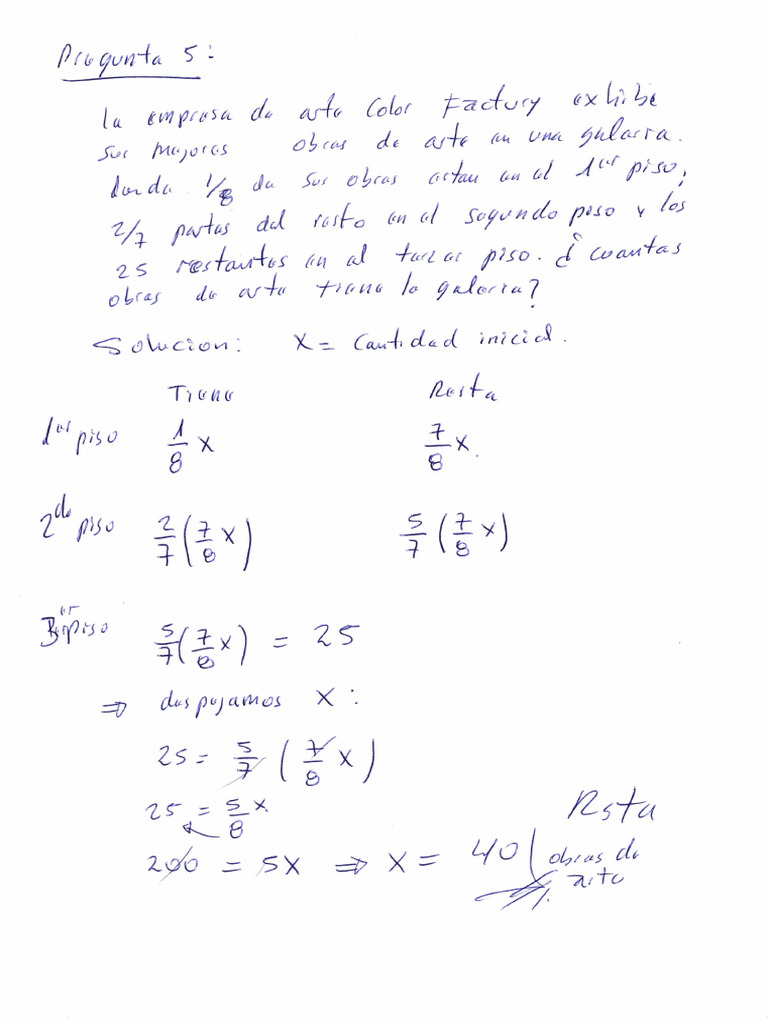 Pregunta 5:
La empresa de arte Color Factury exhibe
sus mejores obras de arte en una galeria.
donde 1/8 de sus obras estan en el 1er piso,
2/7 partes del resto en el segundo piso y los
25 restantes en el tercer piso. ¿ cuantas
obras de arte tiene la galeria?
Solucion: X = Cantidad inicial.
Tiene Resta
1er piso 1/8 X 7/8 X.
2do piso 2/7 (7/8 X) 5/7 (7/8 X)
3er piso 5/7 (7/8 X) = 25
⇒ despejamos X:
25 = 5/7 (7/8 X)
25 = 5/8 X
200 = 5X ⇒ X = 40
Rsta
obras de
arte